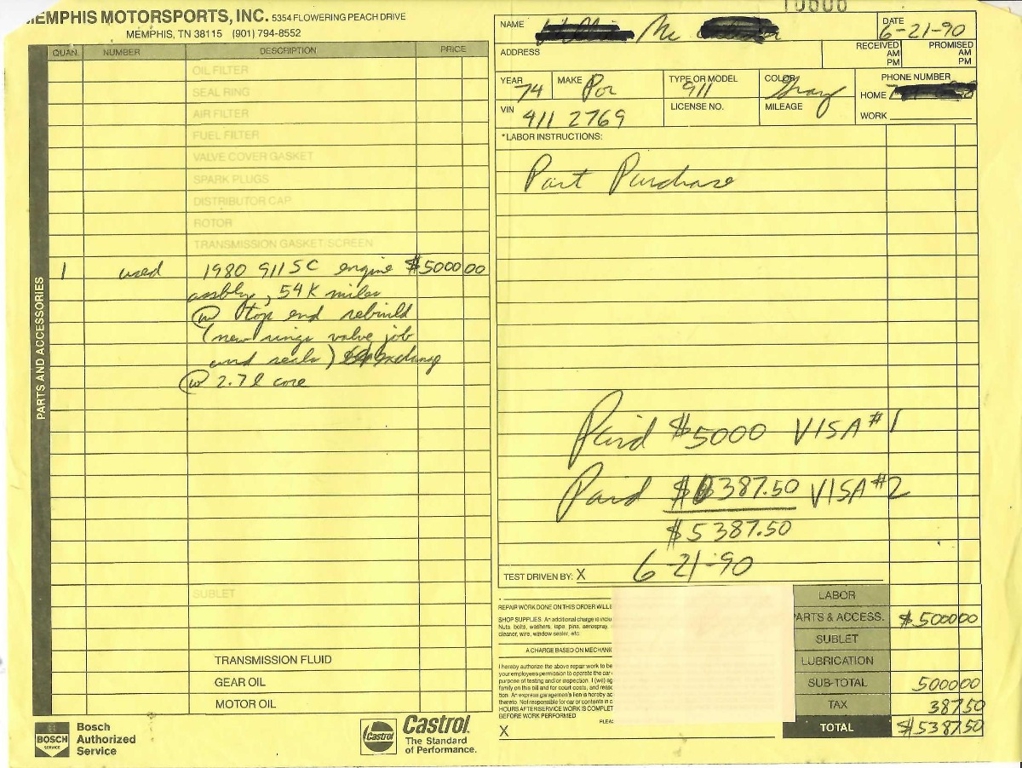 MEMPHIS MOTORSPORTS, INC. 5354 FLOWERING PEACH DRIVE
MEMPHIS, TN 38115 (901) 794-8552
QUAN. NUMBER DESCRIPTION PRICE
OIL FILTER
SEAL RING
AIR FILTER
FUEL FILTER
VALVE COVER GASKET
SPARK PLUGS
DISTRIBUTOR CAP
ROTOR
TRANSMISSION GASKET/SCREEN
1 used 1980 911SC engine $5000 00
assbly, 54K miles
@ top end rebuild
(new rings valve job
and seals) exchange
@ 2.7 l core
PARTS AND ACCESSORIES
SUBLET
TRANSMISSION FLUID
GEAR OIL
MOTOR OIL
BOSCH
SERVICE
Bosch
Authorized
Service
Castrol
Castrol
The Standard
of Performance.
NAME Mc
DATE
6-21-90
ADDRESS
RECEIVED AM PM
PROMISED AM PM
YEAR 74 MAKE Por TYPE OR MODEL 911 COLOR Gray
PHONE NUMBER
HOME
WORK
VIN 411 2769 LICENSE NO. MILEAGE
*LABOR INSTRUCTIONS:
Part Purchase
Paid $5000 VISA #1
Paid $387.50 VISA #2
$5387.50
TEST DRIVEN BY: X 6-21-90
REPAIR WORK DONE ON THIS ORDER WILL
SHOP SUPPLIES. An additional charge is
Nuts, bolts, washers, tape, pins, aerospray
cleaner, wire, window sealer, etc.
A CHARGE BASED ON MECHANIC
I hereby authorize the above repair work to be
your employees permission to operate the car
purpose of testing and/or inspection. I (will)
family on this bill and for court costs, and
tion. An express garagemen's lien is hereby
thereto. Not responsible for car or contents in
HOURS AFTER SERVICE WORK IS COMPLET
BEFORE WORK PERFORMED
X
LABOR
PARTS & ACCESS. $5000 00
SUBLET
LUBRICATION
SUB-TOTAL 5000 00
TAX 387 50
TOTAL $5387 50